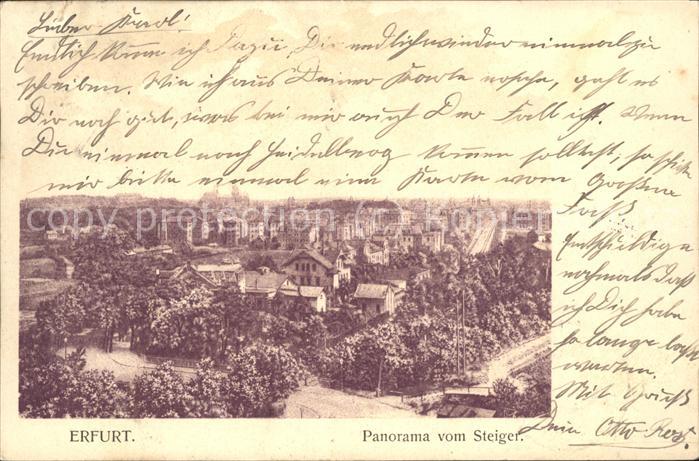 Lieber Karl!
Endlich komme ich dazu, Dir endlich wieder einmal zu
schreiben. Wie ich aus Deiner Karte ersehe, geht es
Dir noch gut, was bei mir auch Der Fall ist. Wenn
Du einmal nach Heidelberg kommen solltest, so schicke
mir bitte einmal eine Karte vom Grossen
Fass
Entschuldige
nochmals dass
ich Dich habe
so lange
warten.
Mit Gruß
Dein Otto
copyright
ERFURT.
Panorama vom Steiger.